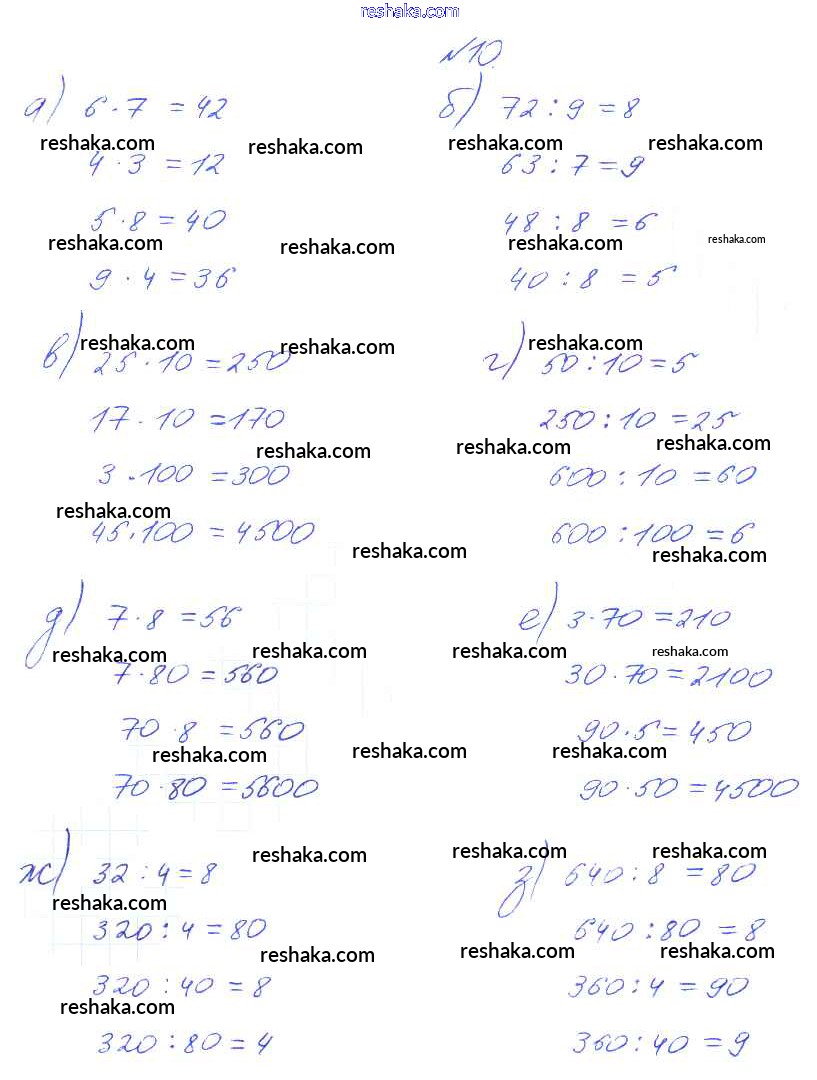 reshaka.com
№10.
а) 6·7 = 42
4·3 = 12
5·8 = 40
9·4 = 36
б) 72:9 = 8
63:7 = 9
48:8 = 6
40:8 = 5
в) 25·10 = 250
17·10 = 170
3·100 = 300
45·100 = 4500
г) 50:10 = 5
250:10 = 25
600:10 = 60
600:100 = 6
д) 7·8 = 56
7·80 = 560
70·8 = 560
70·80 = 5600
е) 3·70 = 210
30·70 = 2100
90·5 = 450
90·50 = 4500
ж) 32:4 = 8
320:4 = 80
320:40 = 8
320:80 = 4
з) 640:8 = 80
640:80 = 8
360:4 = 90
360:40 = 9
reshaka.com reshaka.com reshaka.com reshaka.com
reshaka.com reshaka.com reshaka.com reshaka.com
reshaka.com reshaka.com reshaka.com
reshaka.com reshaka.com reshaka.com
reshaka.com reshaka.com reshaka.com
reshaka.com reshaka.com reshaka.com reshaka.com
reshaka.com reshaka.com reshaka.com
reshaka.com reshaka.com reshaka.com
reshaka.com
reshaka.com reshaka.com reshaka.com
reshaka.com